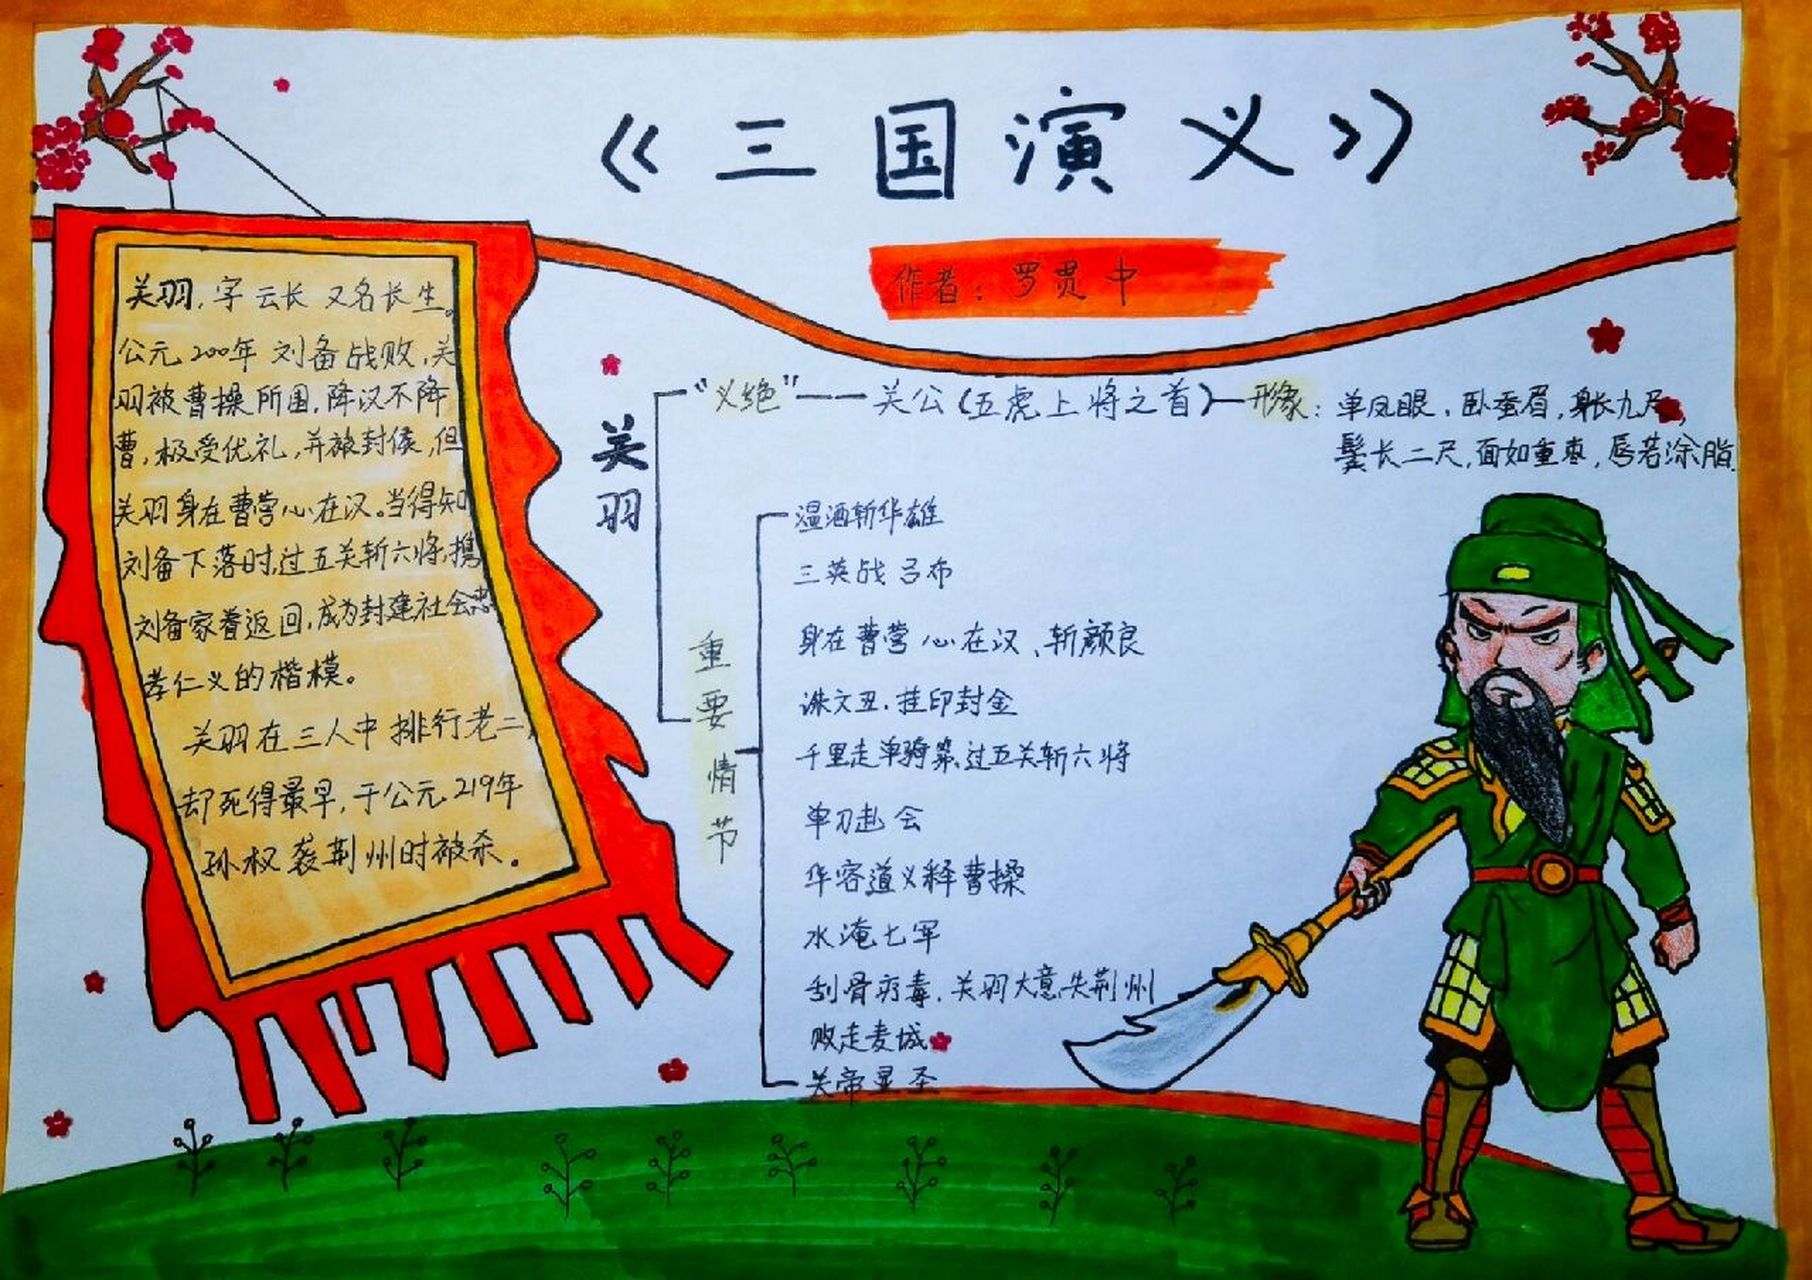 《三国演义》
作者：罗贯中
关羽，字云长 又名长生。
公元200年 刘备战败，关
羽被曹操所围，降汉不降
曹，极受优礼，并被封侯，但
关羽身在曹营心在汉。当得知
刘备下落时，过五关斩六将，携
刘备家眷返回，成为封建社会忠
孝仁义的楷模。
关羽在三人中排行老二，
却死得最早，于公元219年
孙权袭荆州时被杀。
关羽
“义绝”——关公（五虎上将之首）—形象：单凤眼，卧蚕眉，身长九尺，
髯长二尺，面如重枣，唇若涂脂
重要情节
温酒斩华雄
三英战吕布
身在曹营心在汉、斩颜良
诛文丑．挂印封金
千里走单骑、过五关斩六将
单刀赴会
华容道义释曹操
水淹七军
刮骨疗毒．关羽大意失荆州
败走麦城
关帝显圣